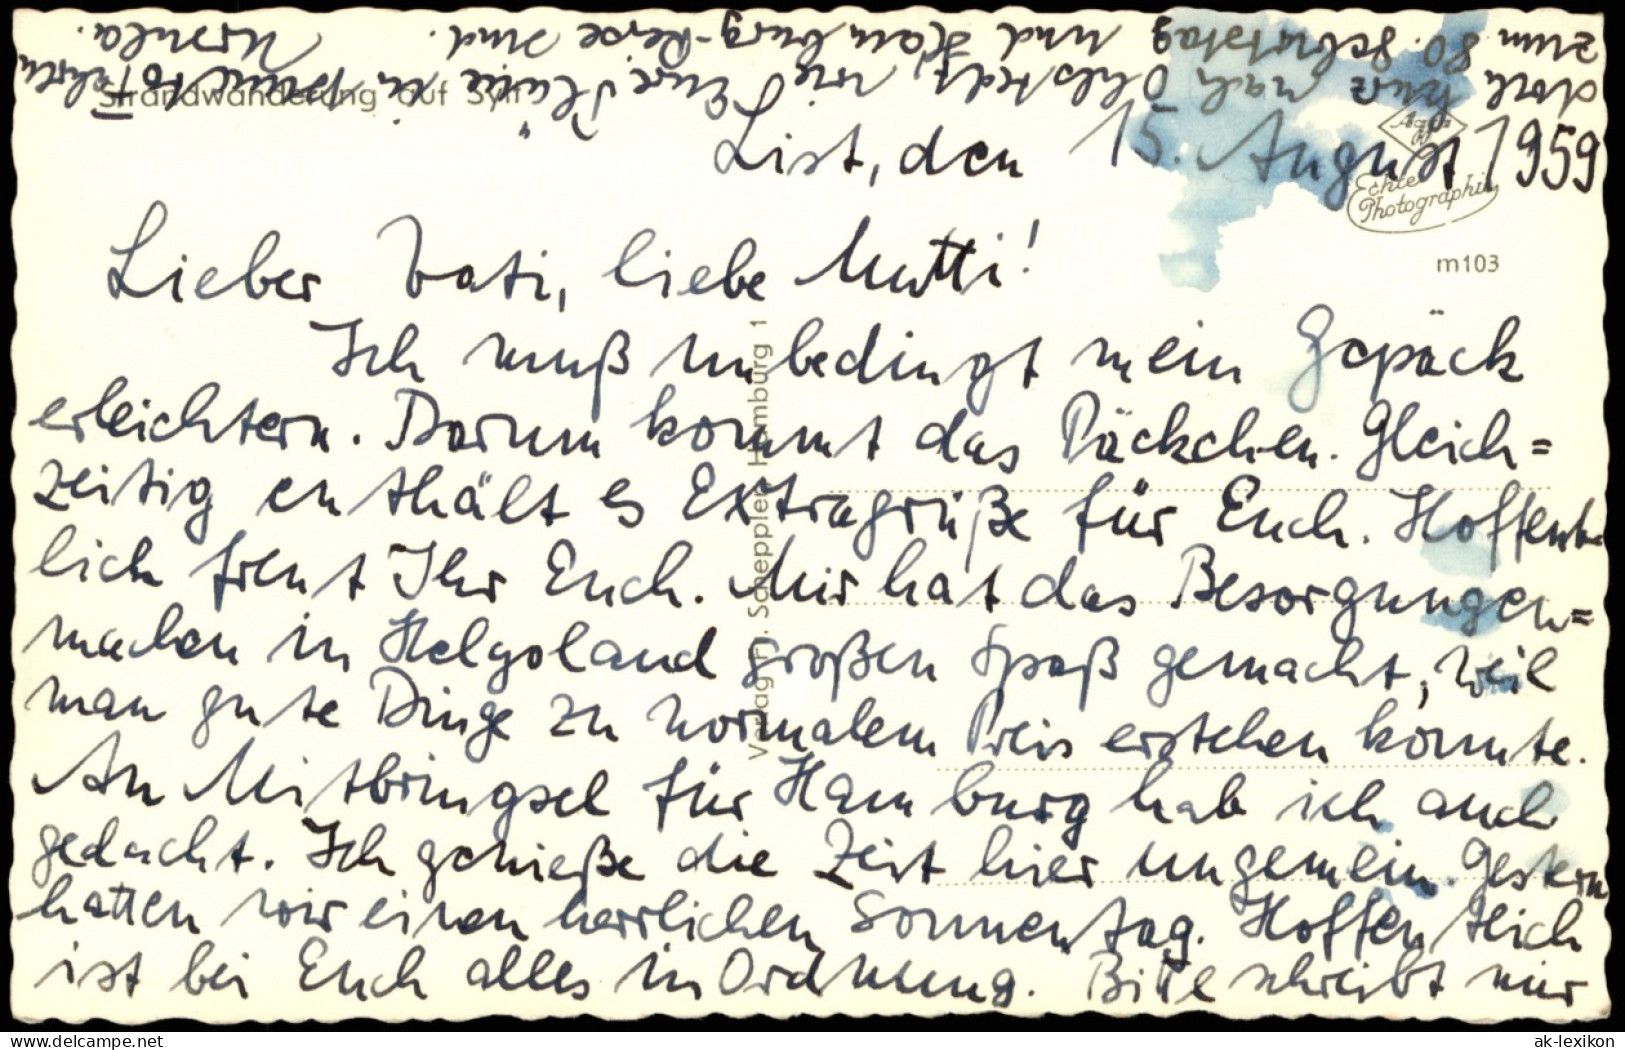 Strandwanderung auf Sylt
List, den 15. August 1959
Echte
Photographie
m103
Verlag Fr. Scheppler, Hamburg 1
Lieber Vati, liebe Mutti!
Ich muß unbedingt mein Gepäck
erleichtern. Darum kommt das Päckchen. Gleich=
zeitig enthält es Extragrüße für Euch. Hoffent-
lich freut Ihr Euch. Mir hat das Besorgungen=
machen in Helgoland großen Spaß gemacht, weil
man gute Dinge zu normalem Preis erstehen konnte.
An Mitbringsel für Hamburg hab ich auch
gedacht. Ich genieße die Zeit hier ungemein. Gestern
hatten wir einen herrlichen Sonnentag. Hoffentlich
ist bei Euch alles in Ordnung. Bitte schreibt mir
doch kurz nach Ohlstedt, wie Eure Pläne in puncto Fahrt
zum 80. Geburtstag und Hamburg-Reise sind. Ursula.
delcampe.net
ak-lexikon